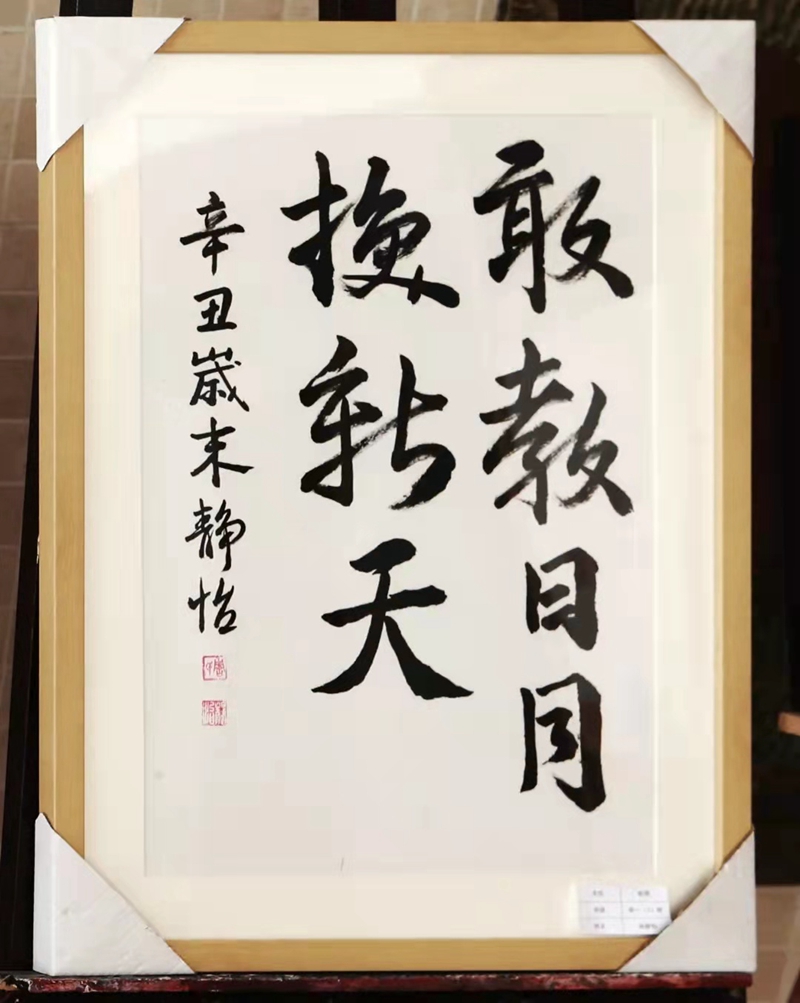 敢教日月
換新天
辛丑歲末靜怡